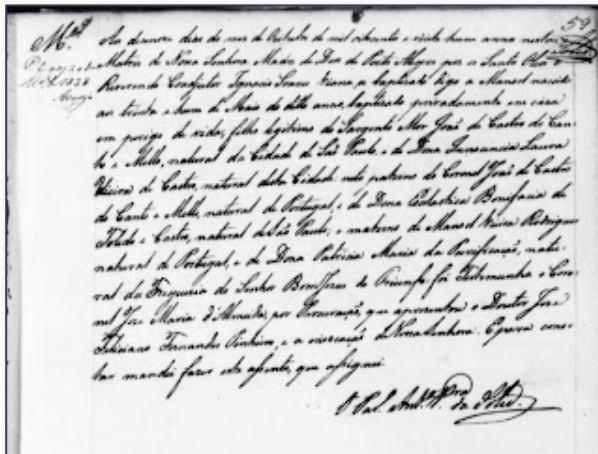 59
M.el
Aos dezenove dias do mes de Outubro de mil oitocentos e vinte e hum annos nesta
Matriz de Nossa Senhora Madre de Deos de Porto Alegre poz os Santos Oleos o
Reverendo Coadjutor Ignacio Soares Viana, a baptizado digo a Manoel nascido
aos trinta e hum de Maio do dito anno, baptizado privadamente em caza
em perigo de vida, filho legitimo do Sargento Mor João de Castro do Can-
to e Mello, natural da Cidade de São Paulo, e de Dona Inocencia Laura
Vieira de Castro, natural desta Cidade: neto paterno do Coronel João de Castro
do Canto e Mello, natural de Portugal, e de Dona Escolastica Bonifacia de
Toledo e Castro, natural de São Paulo; e materno de Manoel Vieira Rodrigues
natural de Portugal, e de Dona Patricia Maria da Purificação, natu-
ral da Freguezia do Senhor Bom Jesus do Triunfo: foi Testemunha o Coro-
nel Joze Maria d'Almeida, por Procuração, que aprezentou o Doutor Joze
Feliciano Fernandes Pinheiro, e a invocação de Nossa Senhora. E para cons-
tar mandei fazer este assento, que assignei.